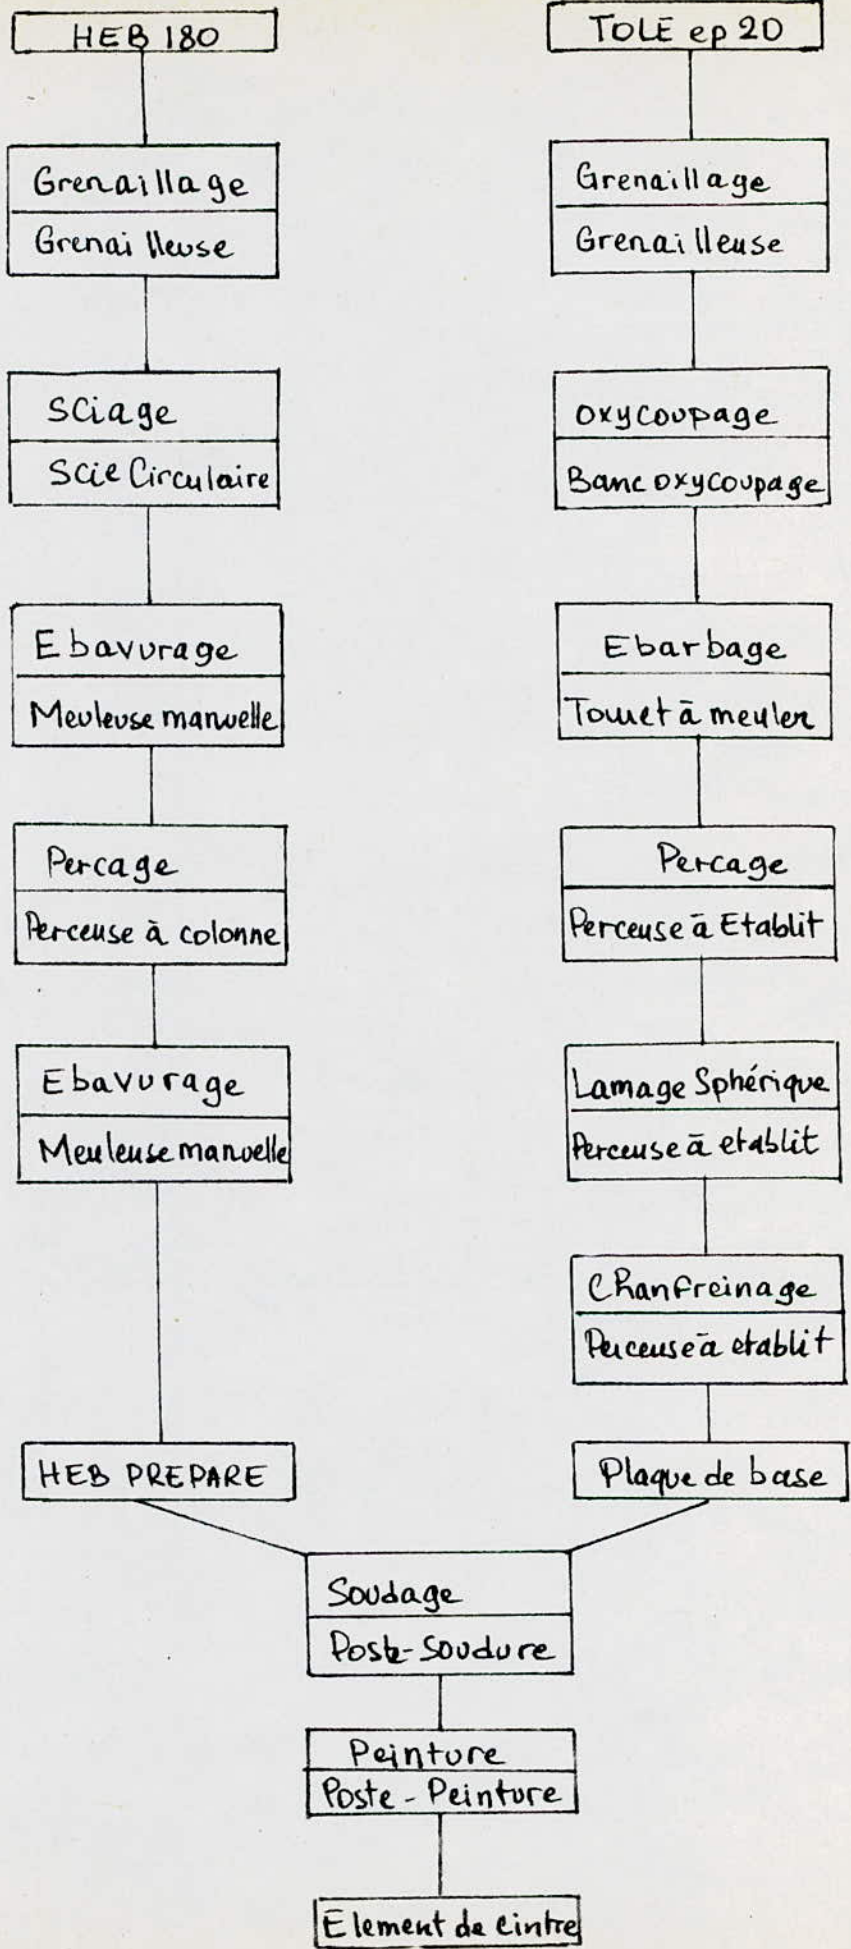 HEB 180
Grenaillage
Grenailleuse
Sciage
Scie Circulaire
Ebavurage
Meuleuse manuelle
Percage
Perceuse à colonne
Ebavurage
Meuleuse manuelle
HEB PREPARE
TOLE ep 20
Grenaillage
Grenailleuse
Oxycoupage
Banc oxycoupage
Ebarbage
Touret à meuler
Percage
Perceuse à Etablit
Lamage Sphérique
Perceuse à etablit
Chanfreinage
Perceuse à etablit
Plaque de base
Soudage
Poste-Soudure
Peinture
Poste-Peinture
Element de cintre